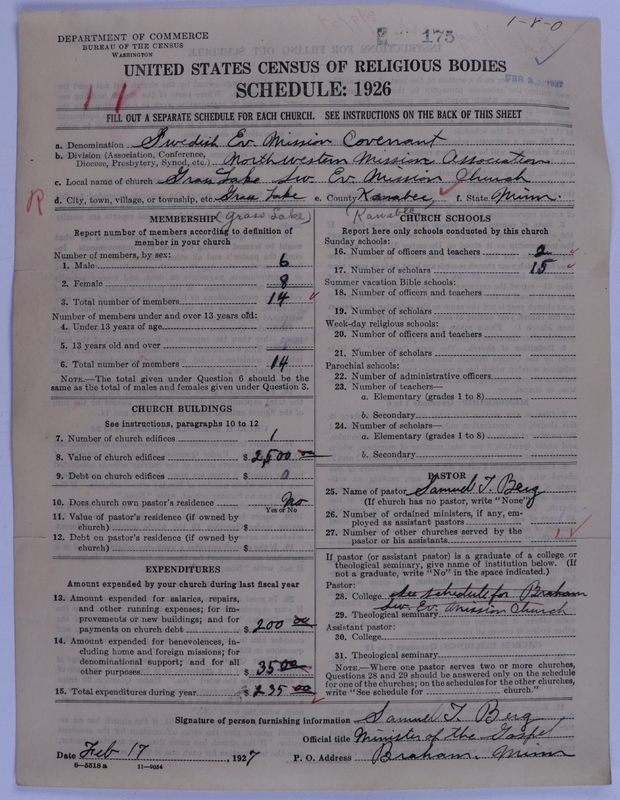 1-8-0
DEPARTMENT OF COMMERCE
BUREAU OF THE CENSUS
WASHINGTON
175
UNITED STATES CENSUS OF RELIGIOUS BODIES
SCHEDULE: 1926
FILL OUT A SEPARATE SCHEDULE FOR EACH CHURCH. SEE INSTRUCTIONS ON THE BACK OF THIS SHEET
a. Denomination Swedish Ev. Mission Covenant
b. Division (Association, Conference, Diocese, Presbytery, Synod, etc.) Northwestern Mission Association
c. Local name of church Grass Lake Sw. Ev. Mission Church
R
d. City, town, village, or township, etc. Grass Lake e. County Kanabec, f. State Minn.
(Grass Lake) Kanabec
MEMBERSHIP
Report number of members according to definition of member in your church
Number of members, by sex:
1. Male 6
2. Female 8
3. Total number of members 14
Number of members under and over 13 years old:
4. Under 13 years of age
5. 13 years old and over
6. Total number of members 14
NOTE.—The total given under Question 6 should be the same as the total of males and females given under Question 3.
CHURCH BUILDINGS
See instructions, paragraphs 10 to 12
7. Number of church edifices 1
8. Value of church edifices $ 2,500 00
9. Debt on church edifices $ 0
10. Does church own pastor's residence No
Yes or No
11. Value of pastor's residence (if owned by church) $
12. Debt on pastor's residence (if owned by church) $
EXPENDITURES
Amount expended by your church during last fiscal year
13. Amount expended for salaries, repairs, and other running expenses; for improvements or new buildings; and for payments on church debt $ 200 00
14. Amount expended for benevolences, including home and foreign missions; for denominational support; and for all other purposes $ 35 00
15. Total expenditures during year $ 235 00
CHURCH SCHOOLS
Report here only schools conducted by this church
Sunday schools:
16. Number of officers and teachers 2
17. Number of scholars 15
Summer vacation Bible schools:
18. Number of officers and teachers
19. Number of scholars
Week-day religious schools:
20. Number of officers and teachers
21. Number of scholars
Parochial schools:
22. Number of administrative officers
23. Number of teachers—
a. Elementary (grades 1 to 8)
b. Secondary
24. Number of scholars—
a. Elementary (grades 1 to 8)
b. Secondary
PASTOR
25. Name of pastor Samuel T. Berg
(If church has no pastor, write "None")
26. Number of ordained ministers, if any, employed as assistant pastors
27. Number of other churches served by the pastor or his assistants 1
If pastor (or assistant pastor) is a graduate of a college or theological seminary, give name of institution below. (If not a graduate, write "No" in the space indicated.)
Pastor:
28. College See schedule for Braham
29. Theological seminary Sw. Ev. Mission Church
Assistant pastor:
30. College
31. Theological seminary
NOTE.—Where one pastor serves two or more churches, Questions 28 and 29 should be answered only on the schedule for one of the churches; on the schedules for the other churches, write "See schedule for church."
Signature of person furnishing information Samuel T. Berg
Official title Minister of the Gospel
Date Feb 17, 1927 P. O. Address Braham, Minn
8-5518a 11-9054